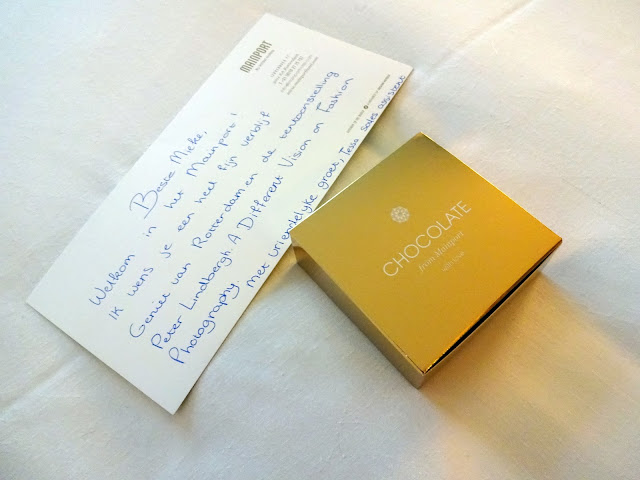 MAINPORT
Beste Mieke,
Welkom in het Mainport!
Ik wens je een heel fijn verblijf
Geniet van Rotterdam en de tentoonstelling
Peter Lindbergh. A Different Vision on Fashion
Photography Met vriendelijke groet, Tessa sales assistent
CHOCOLATE
from Mainport
with love